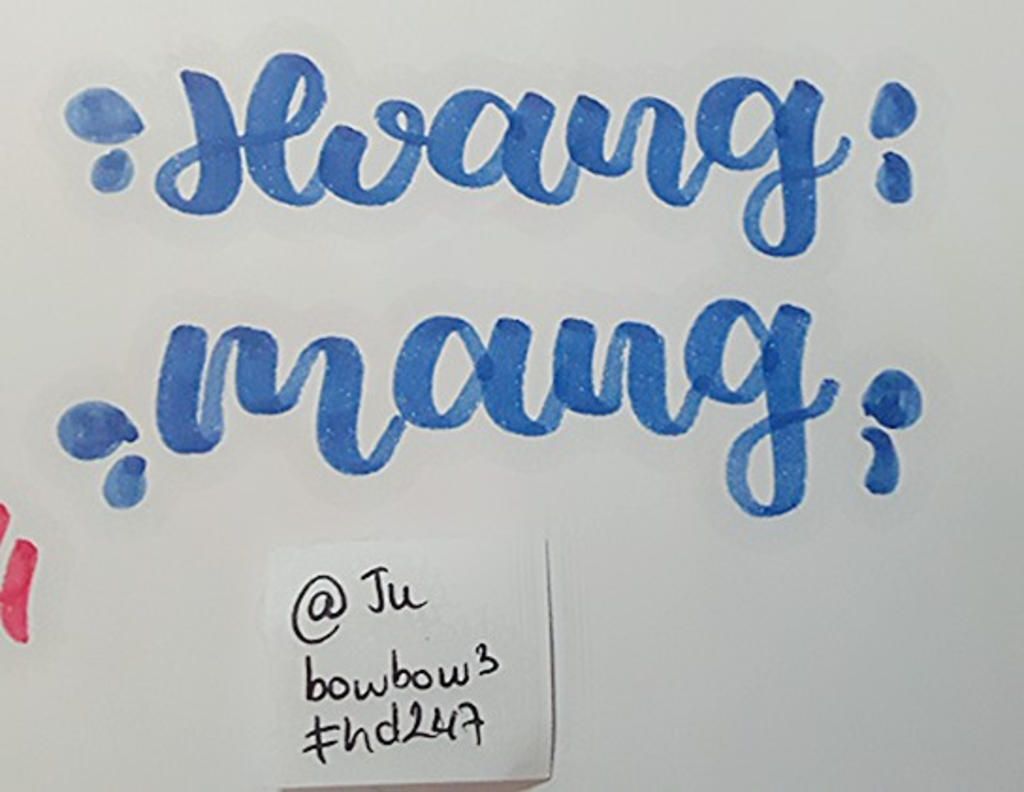 Hoang
mang
@ Ju
bowbow3
#hd247